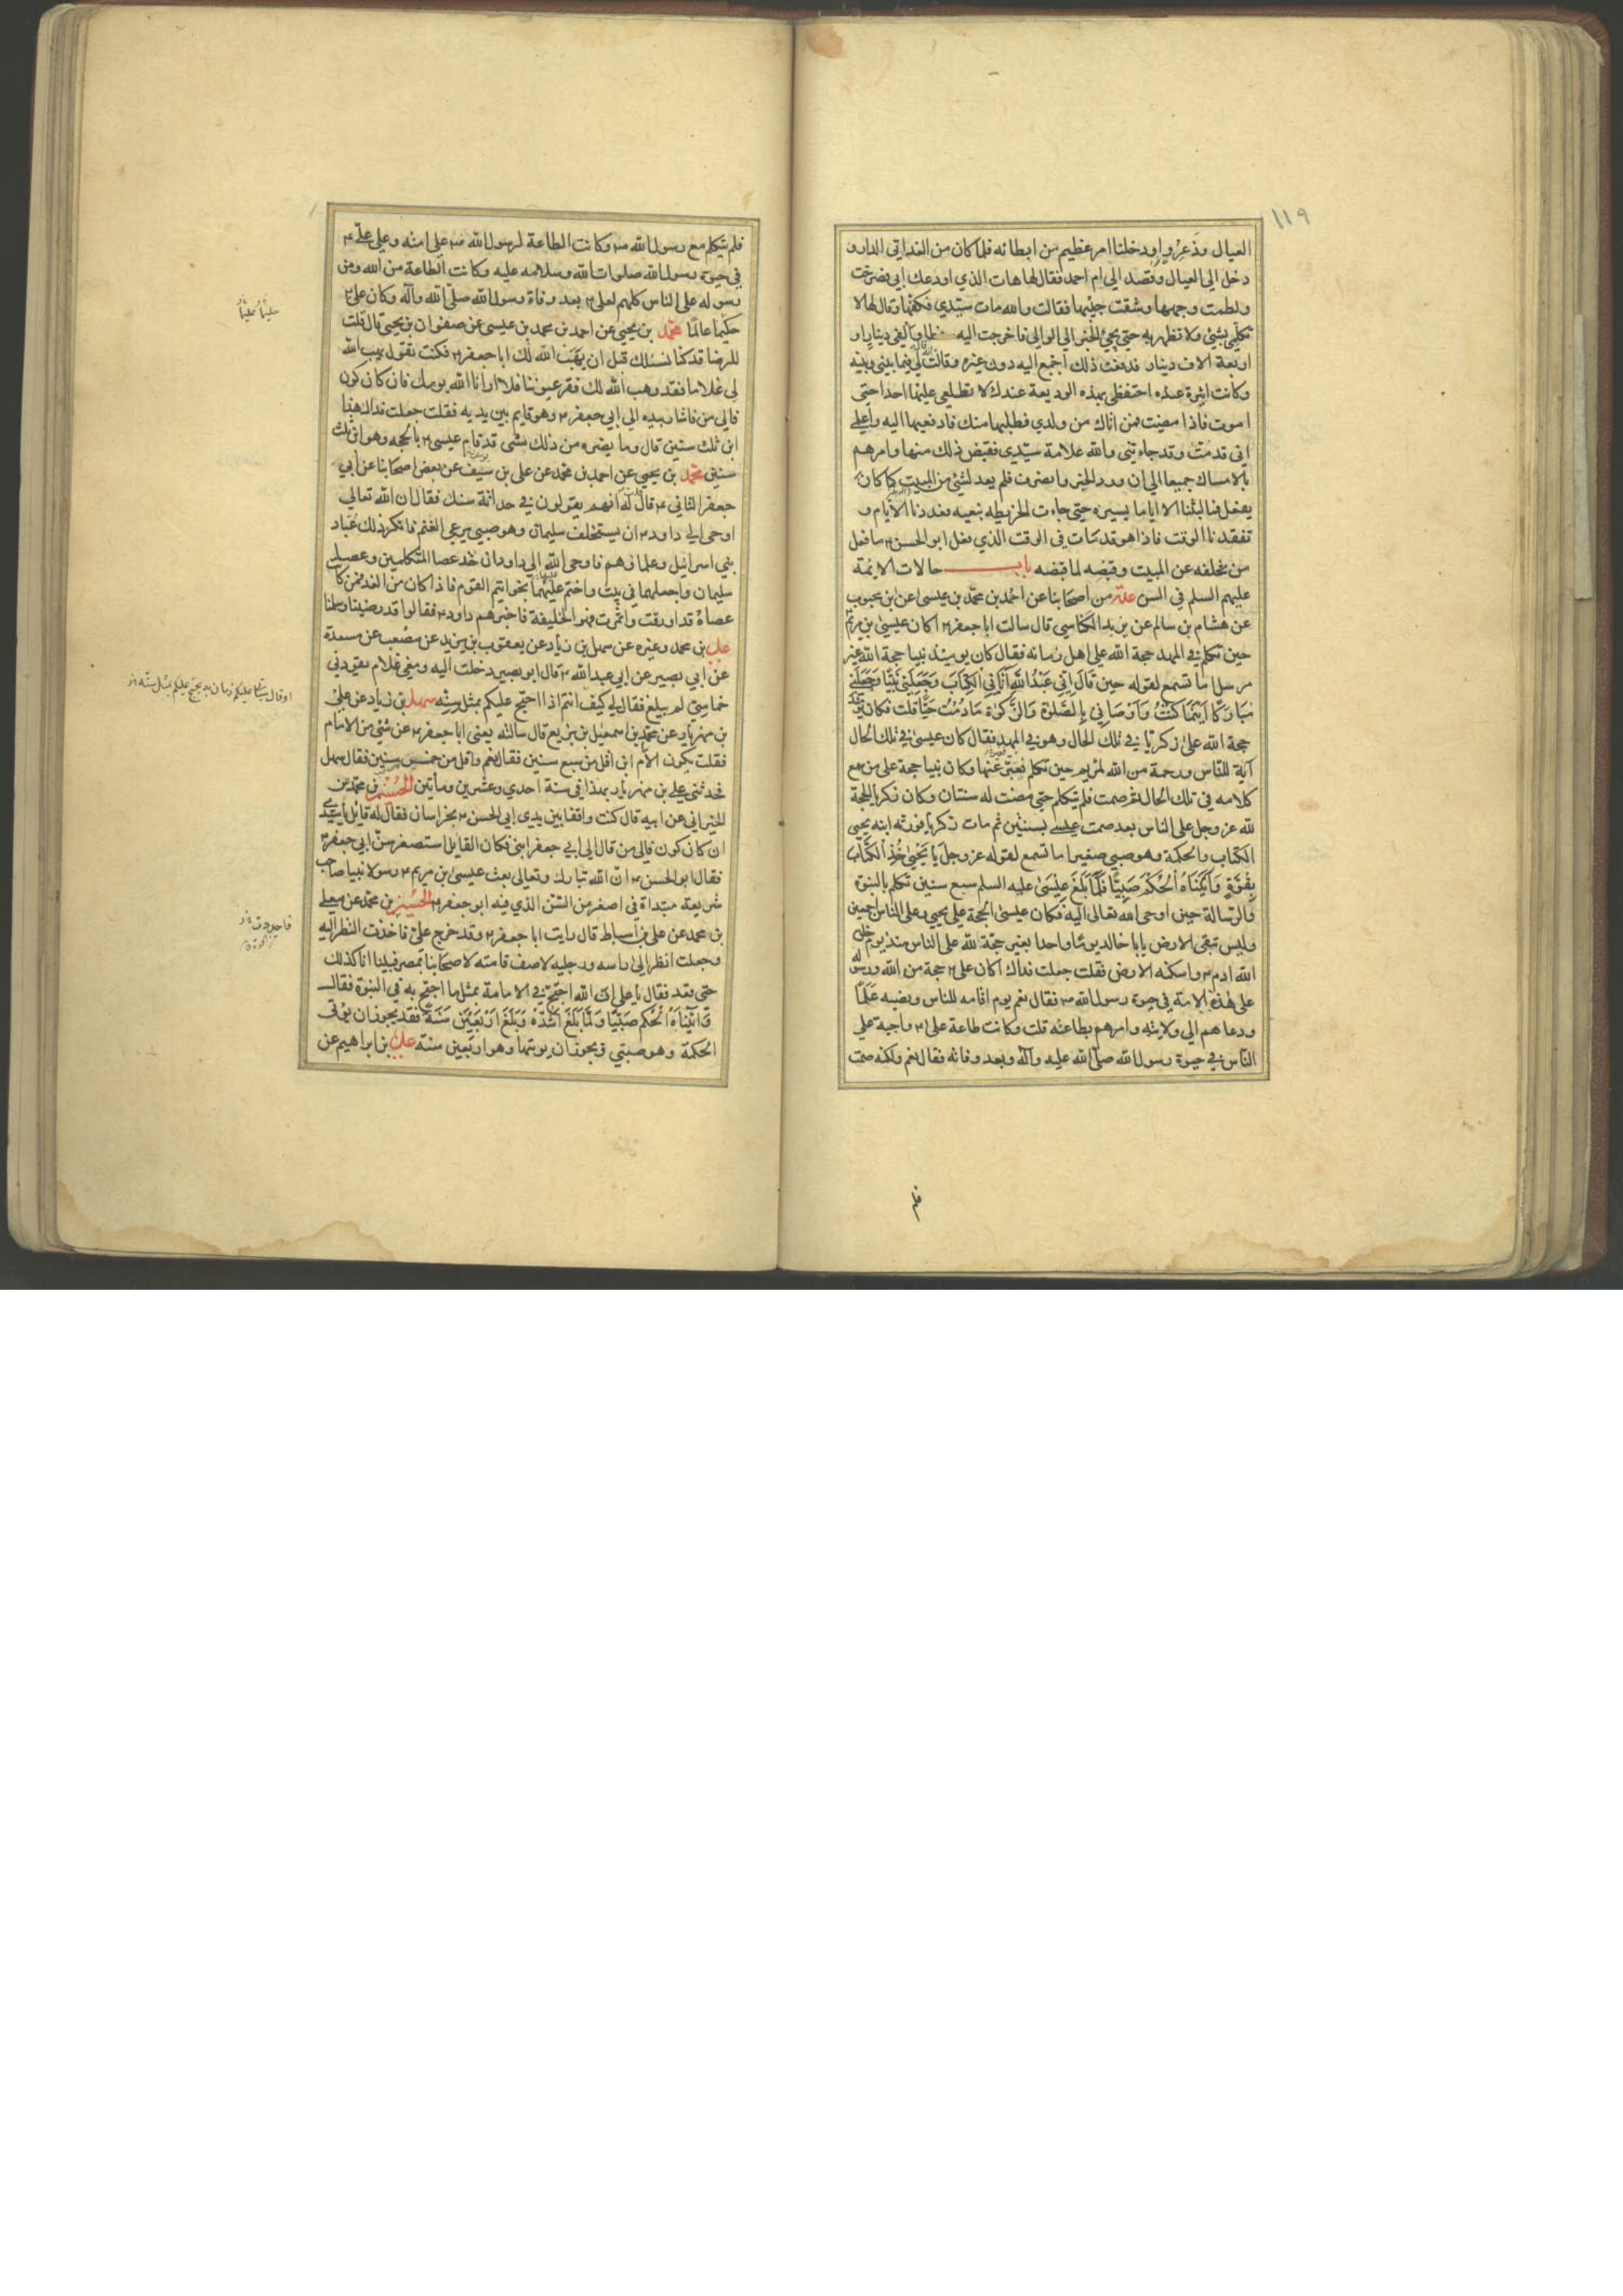 ١١٩
العيال وذعروا ودخلنا امر عظيم من ابطائه فلما كان من الغد اتى الدار و
دخل الى العيال وقصد الى ام احمد فقال لها هات الذي اودعك ابي فصرخت
ولطمت وجهها وشقت جيبها فقالت والله مات سيدي فكفها وقال لها لا
تكلمي بشيء ولا تظهريه حتى يجئ الخبر الى الوالي فاخرجت اليه سفطا والفي دينار او
اربعة الاف دينار فدفعت ذلك اجمع اليه دون غيره وقالت لي فيما بيني وبينه
وكانت اثيرة عنده احتفظي بهذه الوديعة عندك لا تطلعي عليها احدا حتى
اموت فاذا مضيت فمن اتاك من ولدي فطلبها منك فادفعيها اليه واعلمي
اني قد مت وقد جاءتني والله علامة سيدي فقبض ذلك منها وامرهم
بالامساك جميعا الى ان ورد الخبر وانصرف فلم يعد لشئ من المبيت كما كان
يفعل فما لبثنا الا اياما يسيرة حتى جاءت الخريطة بنعيه فعددنا الايام و
تفقدنا الوقت فاذا هو قد مات في الوقت الذي فعل ابو الحسن ما فعل
من تخلفه عن المبيت وقبضه لما قبضه باب حالات الائمة
عليهم السلم في السن عدة من اصحابنا عن احمد بن محمد بن عيسى عن ابن محبوب
عن هشام بن سالم عن يزيد الكناسي قال سالت ابا جعفر اكان عيسى بن مريم
حين تكلم في المهد حجة الله على اهل زمانه فقال كان يومئذ نبيا حجة الله غير
مرسل اما تسمع لقوله حين قال اني عبد الله آتاني الكتاب وجعلني نبيا وجعلني
مباركا اينما كنت واوصاني بالصلوة والزكوة ما دمت حيا قلت فكان يومئذ
حجة الله على زكريا في تلك الحال وهو في المهد فقال كان عيسى في تلك الحال
آية للناس ورحمة من الله لمريم حين تكلم فعبر عنها وكان نبيا حجة على من سمع
كلامه في تلك الحال ثم صمت فلم يتكلم حتى مضت له سنتان وكان زكريا الحجة
لله عز وجل على الناس بعد صمت عيسى بسنتين ثم مات زكريا فورثه ابنه يحيى
الكتاب والحكمة وهو صبي صغير اما تسمع لقوله عز وجل يا يحيى خذ الكتاب
بقوة وآتيناه الحكم صبيا فلما بلغ عيسى عليه السلم سبع سنين تكلم بالنبوة
والرسالة حين اوحى الله تعالى اليه فكان عيسى الحجة على يحيى وعلى الناس اجمعين
وليس تبقى الارض يا با خالد يوما واحدا بغير حجة الله على الناس منذ يوم خلق
الله ادم واسكنه الارض فقلت جعلت فداك اكان على حجة من الله ورسوله
على هذه الامة في حيوة رسول الله فقال نعم يوم اقامه للناس ونصبه علما
ودعاهم الى ولايته وامرهم بطاعته قلت وكانت طاعة على واجبة على
الناس في حيوة رسول الله صلى الله عليه وآله وبعد وفاته فقال نعم ولكنه صمت
فلم
فلم يتكلم مع رسول الله وكانت الطاعة لرسول الله على امته وعلى على
في حيوة رسول الله صلوات الله وسلامه عليه وكانت الطاعة من الله ومن
رسوله على الناس كلهم لعلى بعد وفاة رسول الله صلى الله وآله وكان على
حكيما عالما محمد بن يحيى عن احمد بن محمد بن عيسى عن صفوان بن يحيى قال قلت
للرضا قد كنا نسئلك قبل ان يهب الله لك ابا جعفر فكنت تقول يهب الله
لى غلاما فقد وهب الله لك فقر عيوننا فلا ارانا الله يومك فان كان كون
فالى من فاشار بيده الى ابي جعفر وهو قايم بين يديه فقلت جعلت فداك هذا
ابن ثلث سنين قال وما يضره من ذلك شئ قد قام عيسى بالحجة وهو ابن ثلث
سنين محمد بن يحيى عن احمد بن محمد عن على بن سيف عن بعض اصحابنا عن ابي
جعفر الثاني قال قلت له انهم يقولون في حداثة سنك فقال ان الله تعالى
اوحى الى داود ان يستخلف سليمان وهو صبي يرعى الغنم فانكر ذلك عباد
بني اسرائيل وعلماؤهم فاوحى الله الى داود ان خذ عصا المتكلمين وعصا
سليمان واجعلهما في بيت واختم عليهما بخواتيم القوم فاذا كان من الغد فمن كانت
عصاه قد اورقت واثمرت فهو الخليفة فاخبرهم داود فقالوا قد رضينا وسلمنا
على بن محمد وغيره عن سهل بن زياد عن يعقوب بن يزيد عن مصعب عن مسعدة
عن ابي بصير عن ابي عبد الله قال ابو بصير دخلت اليه ومعي غلام يقودني
خماسي لم يبلغ فقال لى كيف انتم اذا احتج عليكم بمثل سنه سهل بن زياد عن على
بن مهزيار عن محمد بن اسمعيل بن بزيع قال سالته يعني ابا جعفر عن شئ من الامام
فقلت يكون الامام ابن اقل من سبع سنين فقال نعم واقل من خمس سنين فقال سهل
فحدثني على بن مهزيار بهذا في سنة احدى وعشرين ومأتين الحسين بن محمد عن
الخيراني عن ابيه قال كنت واقفا بين يدي ابي الحسن بخراسان فقال له قائل يا سيدي
ان كان كون فالى من قال الى ابي جعفر ابني فكان القايل استصغر سن ابي جعفر
فقال ابو الحسن ان الله تبارك وتعالى بعث عيسى بن مريم رسولا نبيا صاحب
شريعة مبتدأة في اصغر من السن الذي فيه ابو جعفر الحسين بن محمد عن معلى
بن محمد عن على بن اسباط قال رايت ابا جعفر وقد خرج على فاخذت النظر اليه
وجعلت انظر الى راسه ورجليه لاصف قامته لاصحابنا بمصر فبينا انا كذلك
حتى قعد فقال يا على ان الله احتج في الامامة بمثل ما احتج به في النبوة فقال
وآتيناه الحكم صبيا ولما بلغ اشده وبلغ اربعين سنة فقد يجوز ان يؤتى
الحكمة وهو صبي ويجوز ان يؤتيها وهو اربعين سنة على بن ابراهيم عن